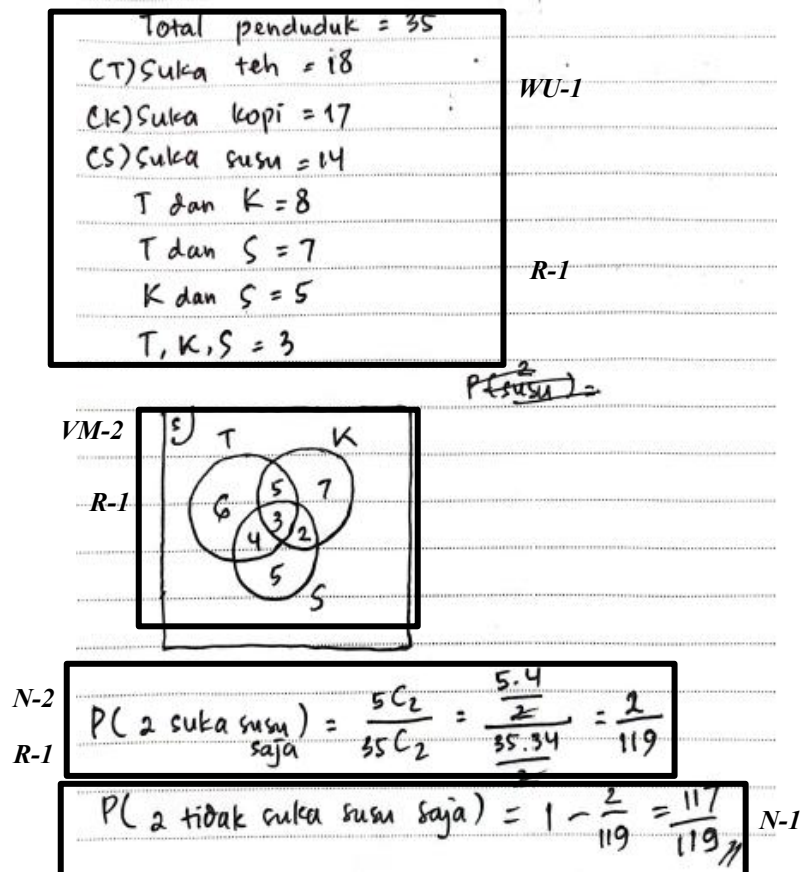 Total penduduk = 35
(T) Suka teh = 18
(K) Suka kopi = 17
(S) Suka susu = 14
T dan K = 8
T dan S = 7
K dan S = 5
T, K, S = 3
WU-1
R-1
P(susu) =
2
VM-2
R-1
S
T
K
6
5
7
3
4
2
5
S
N-2
R-1
P( 2 suka susu saja ) = 5C2 / 35C2 = (5.4 / 2) / (35.34 / 2) = 2 / 119
P( 2 tidak suka susu saja) = 1 - 2/119 = 117/119 //
N-1